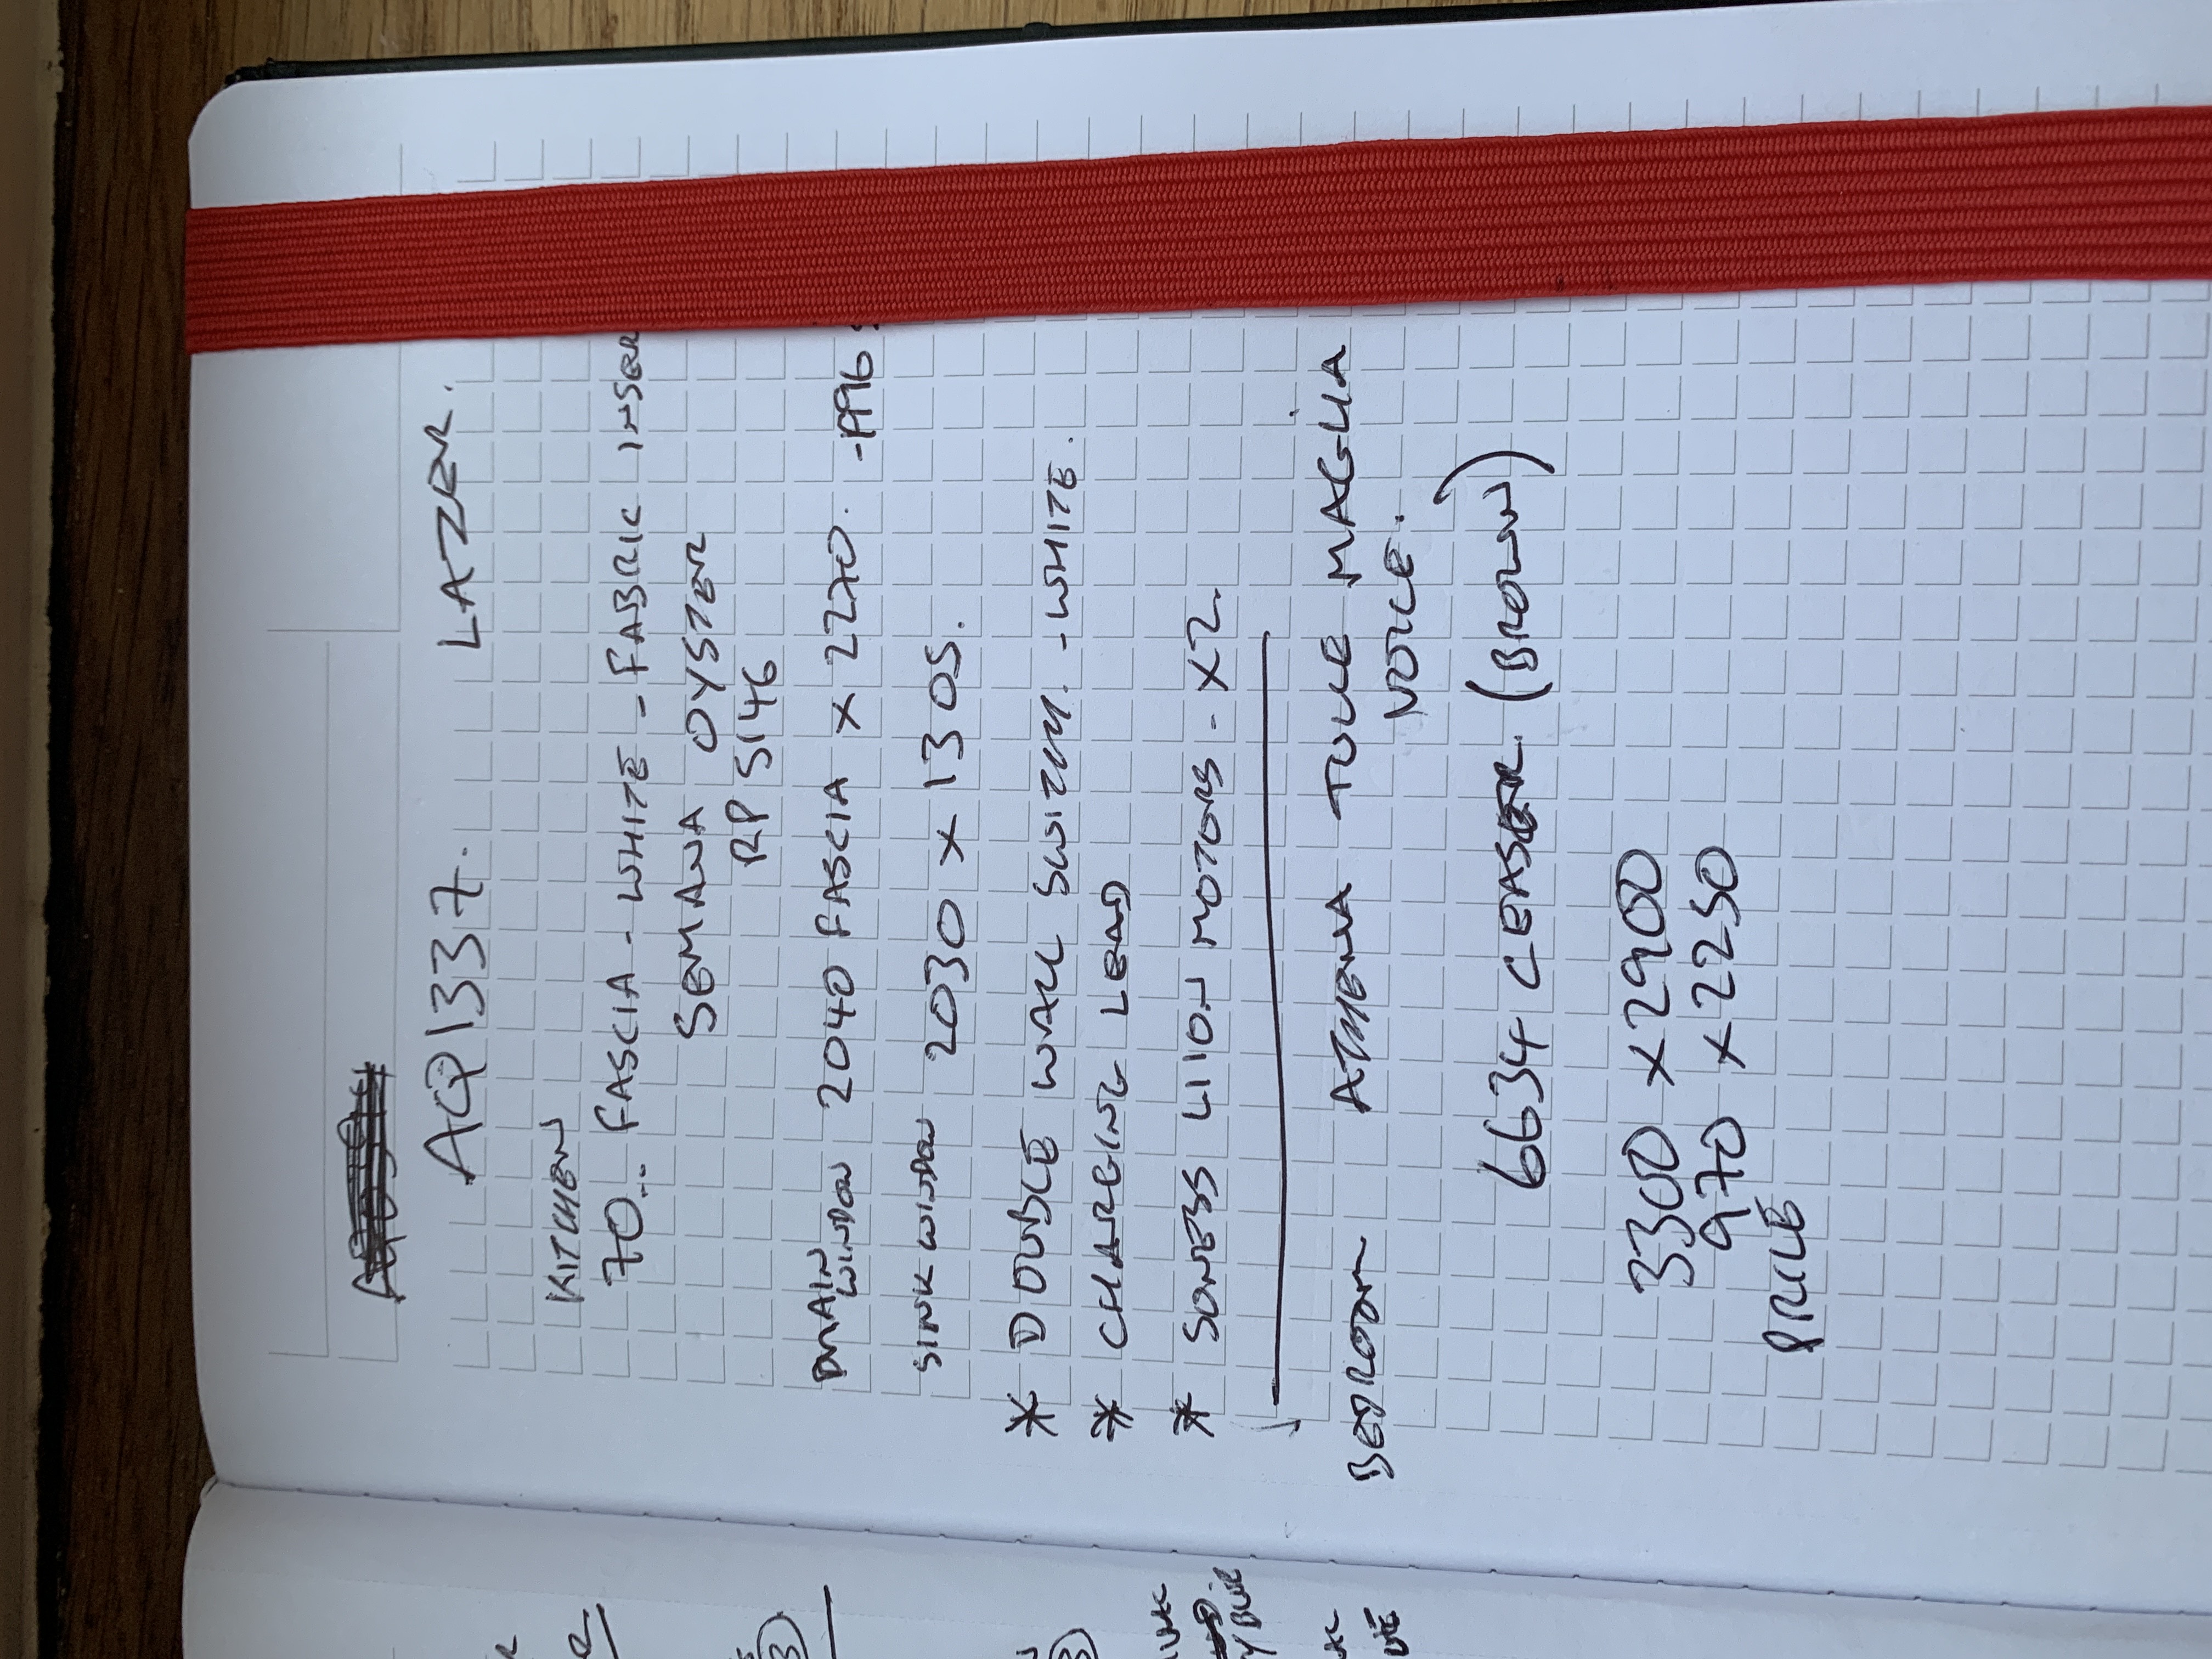 ACQ1337. LAZER.
KITCHEN
70... FASCIA - WHITE - FABRIC INSER
SEMANA OYSTER
RP 5146
MAIN WINDOW 2040 FASCIA X 2270. -
SINK WINDOW 2030 X 1305.
* DOUBLE WALL SWITCH. - WHITE.
* CHARGING LEAD
* SONESS LIION MOTORS - X2.
BEDROOM ATHENA TULLE MAGLIA
VOILE.
6634 CEASER (BROWN)
3300 X 2900
970 X 2250
PRICE